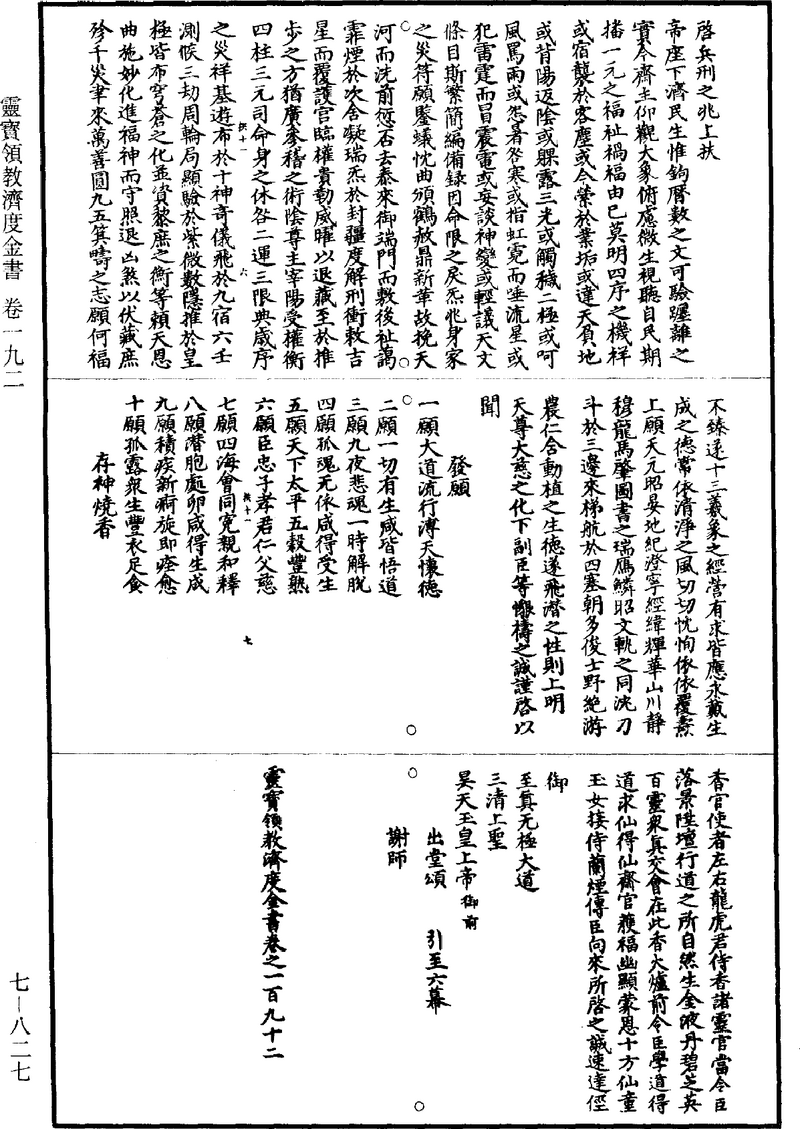 靈寶領教濟度金書 卷一九二
啓兵刑之兆上扶
帝座下濟民生惟鉤曆數之文可驗躔離之
實今齋主仰觀大象俯慮微生視聽自民期
播一元之福祉禍福由已莫明四序之機祥
或宿襲於客塵或今縈於業垢或違天負地
或背陽返陰或躶露三光或觸穢二極或呵
風罵雨或怨暑咎寒或指虹霓而唾流星或
犯雷霆而冒震電或妄談神變或輕議天文
條目斯繁簡編備録因命限之戾炁兆身家
之災符願鑒蟻忱曲頒鶴赦鼎新華故挽天
河而洗前愆否去泰來御端門而敷後祉靄
霏煙於次舍凝瑞炁於封疆度解刑衝敕吉
星而覆護官臨權貴勒威曜以退藏至於推
步之方猶廣參稽之術陰尊主宰陽受權衡
四柱三元司命身之休咎二運三限典歲序
之災祥基遊布於十神奇儀飛於九宿六壬
測候三劫周輪局顯驗於紫微數隱推於皇
極皆布穹蒼之化並資黎庶之衡等賴天恩
曲施妙化進福神而守照退凶煞以伏藏庶
殄千災聿來萬善圓九五箕疇之志願何福
不臻遂十三羲象之經營有求皆應永戴生
成之德常依清淨之風切切忱恂依依覆燾
上願天元昭晏地紀澄寧經緯輝華山川靜
穆龍馬肇圖書之瑞鳳麟昭文軌之同洗刀
斗於三邊來梯航於四塞朝多俊士野絶游
農仁含動植之生德遂飛潛之性則上明
天尊大慈之化下副臣等懇禱之誠謹啓以
聞
發願
一願大道流行溥天懷德
二願一切有生咸皆悟道
三願九夜悲魂一時解脫
四願孤魂无依咸得受生
五願天下太平五穀豐熟
六願臣忠子孝君仁父慈
七願四海會同寃親和釋
八願潛胞處卵咸得生成
九願積疾新痾旋即痊愈
十願孤露衆生豐衣足食
存神燒香
香官使者左右龍虎君侍香諸靈官當令臣
落景陞壇行道之所自然生金液丹碧芝英
百靈衆真交會在此香火爐前令臣學道得
道求仙得仙齋官獲福幽顯蒙恩十方仙童
玉女接侍蘭煙傳臣向來所啓之誠速達徑
御
至真无極大道
三清上聖
昊天玉皇上帝御前
出堂頌 引至六幕
謝師
靈寶領教濟度金書卷之一百九十二
七—八二七